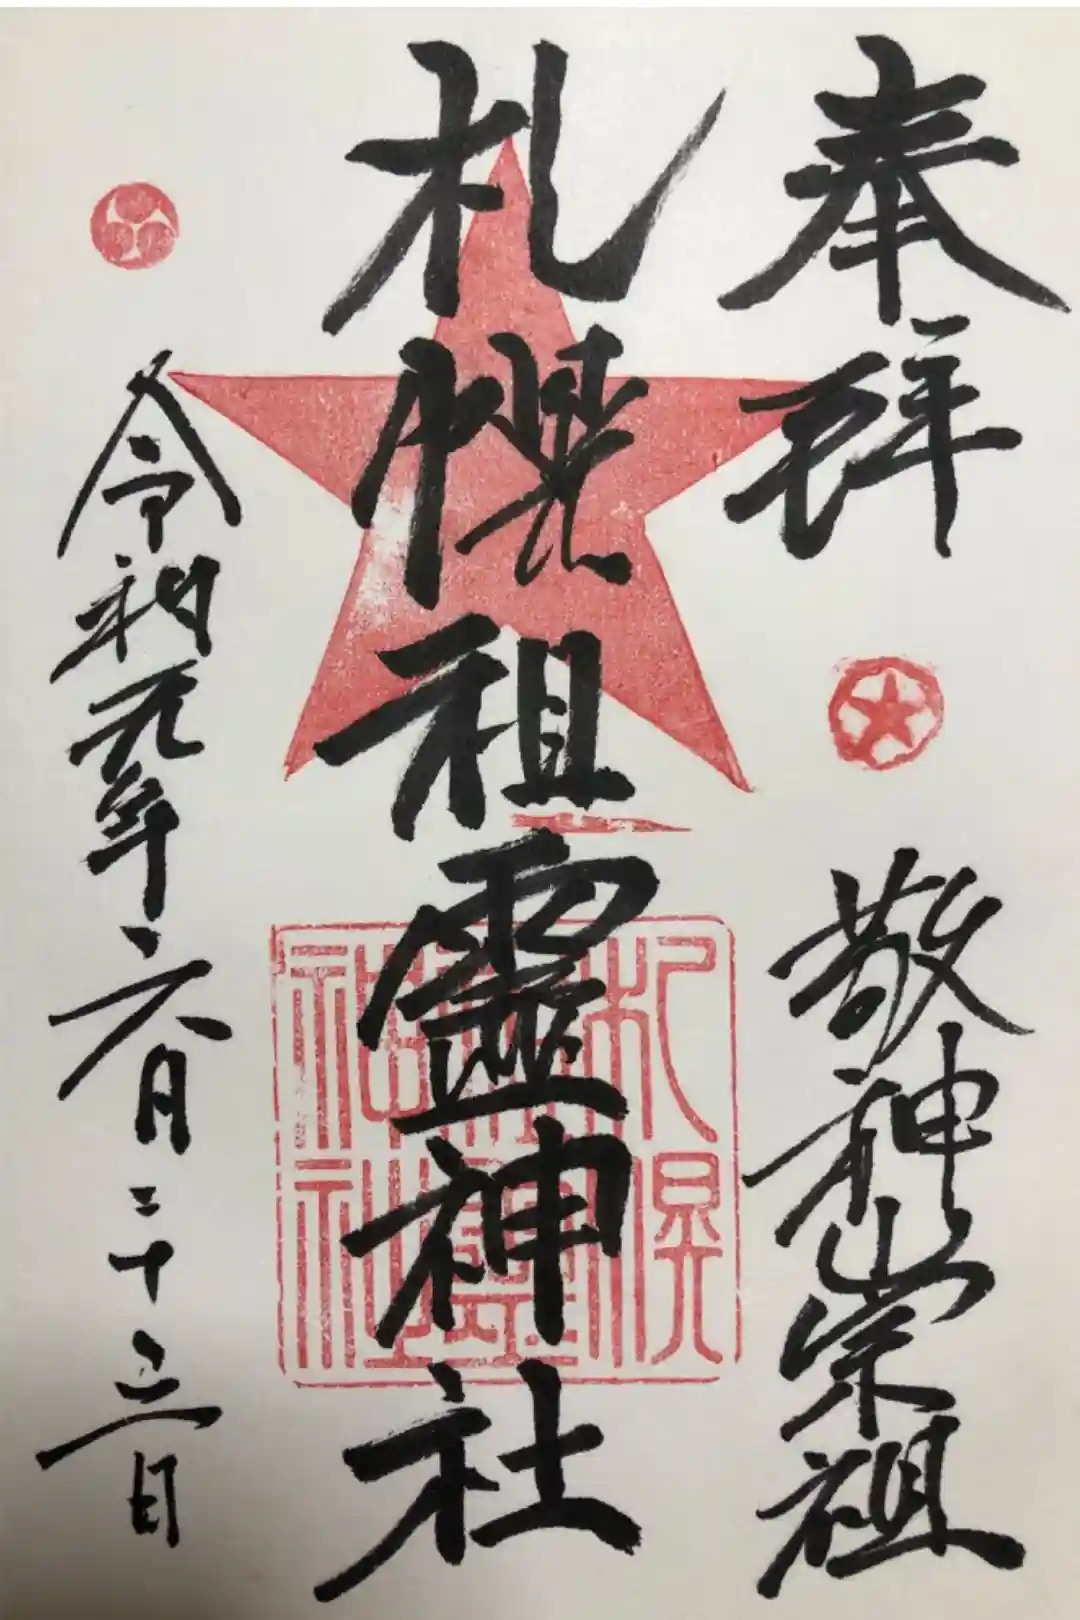 奉拝
敬神崇祖
札幌祖霊神社
札幌
祖霊
神社
令和元年六月二十三日